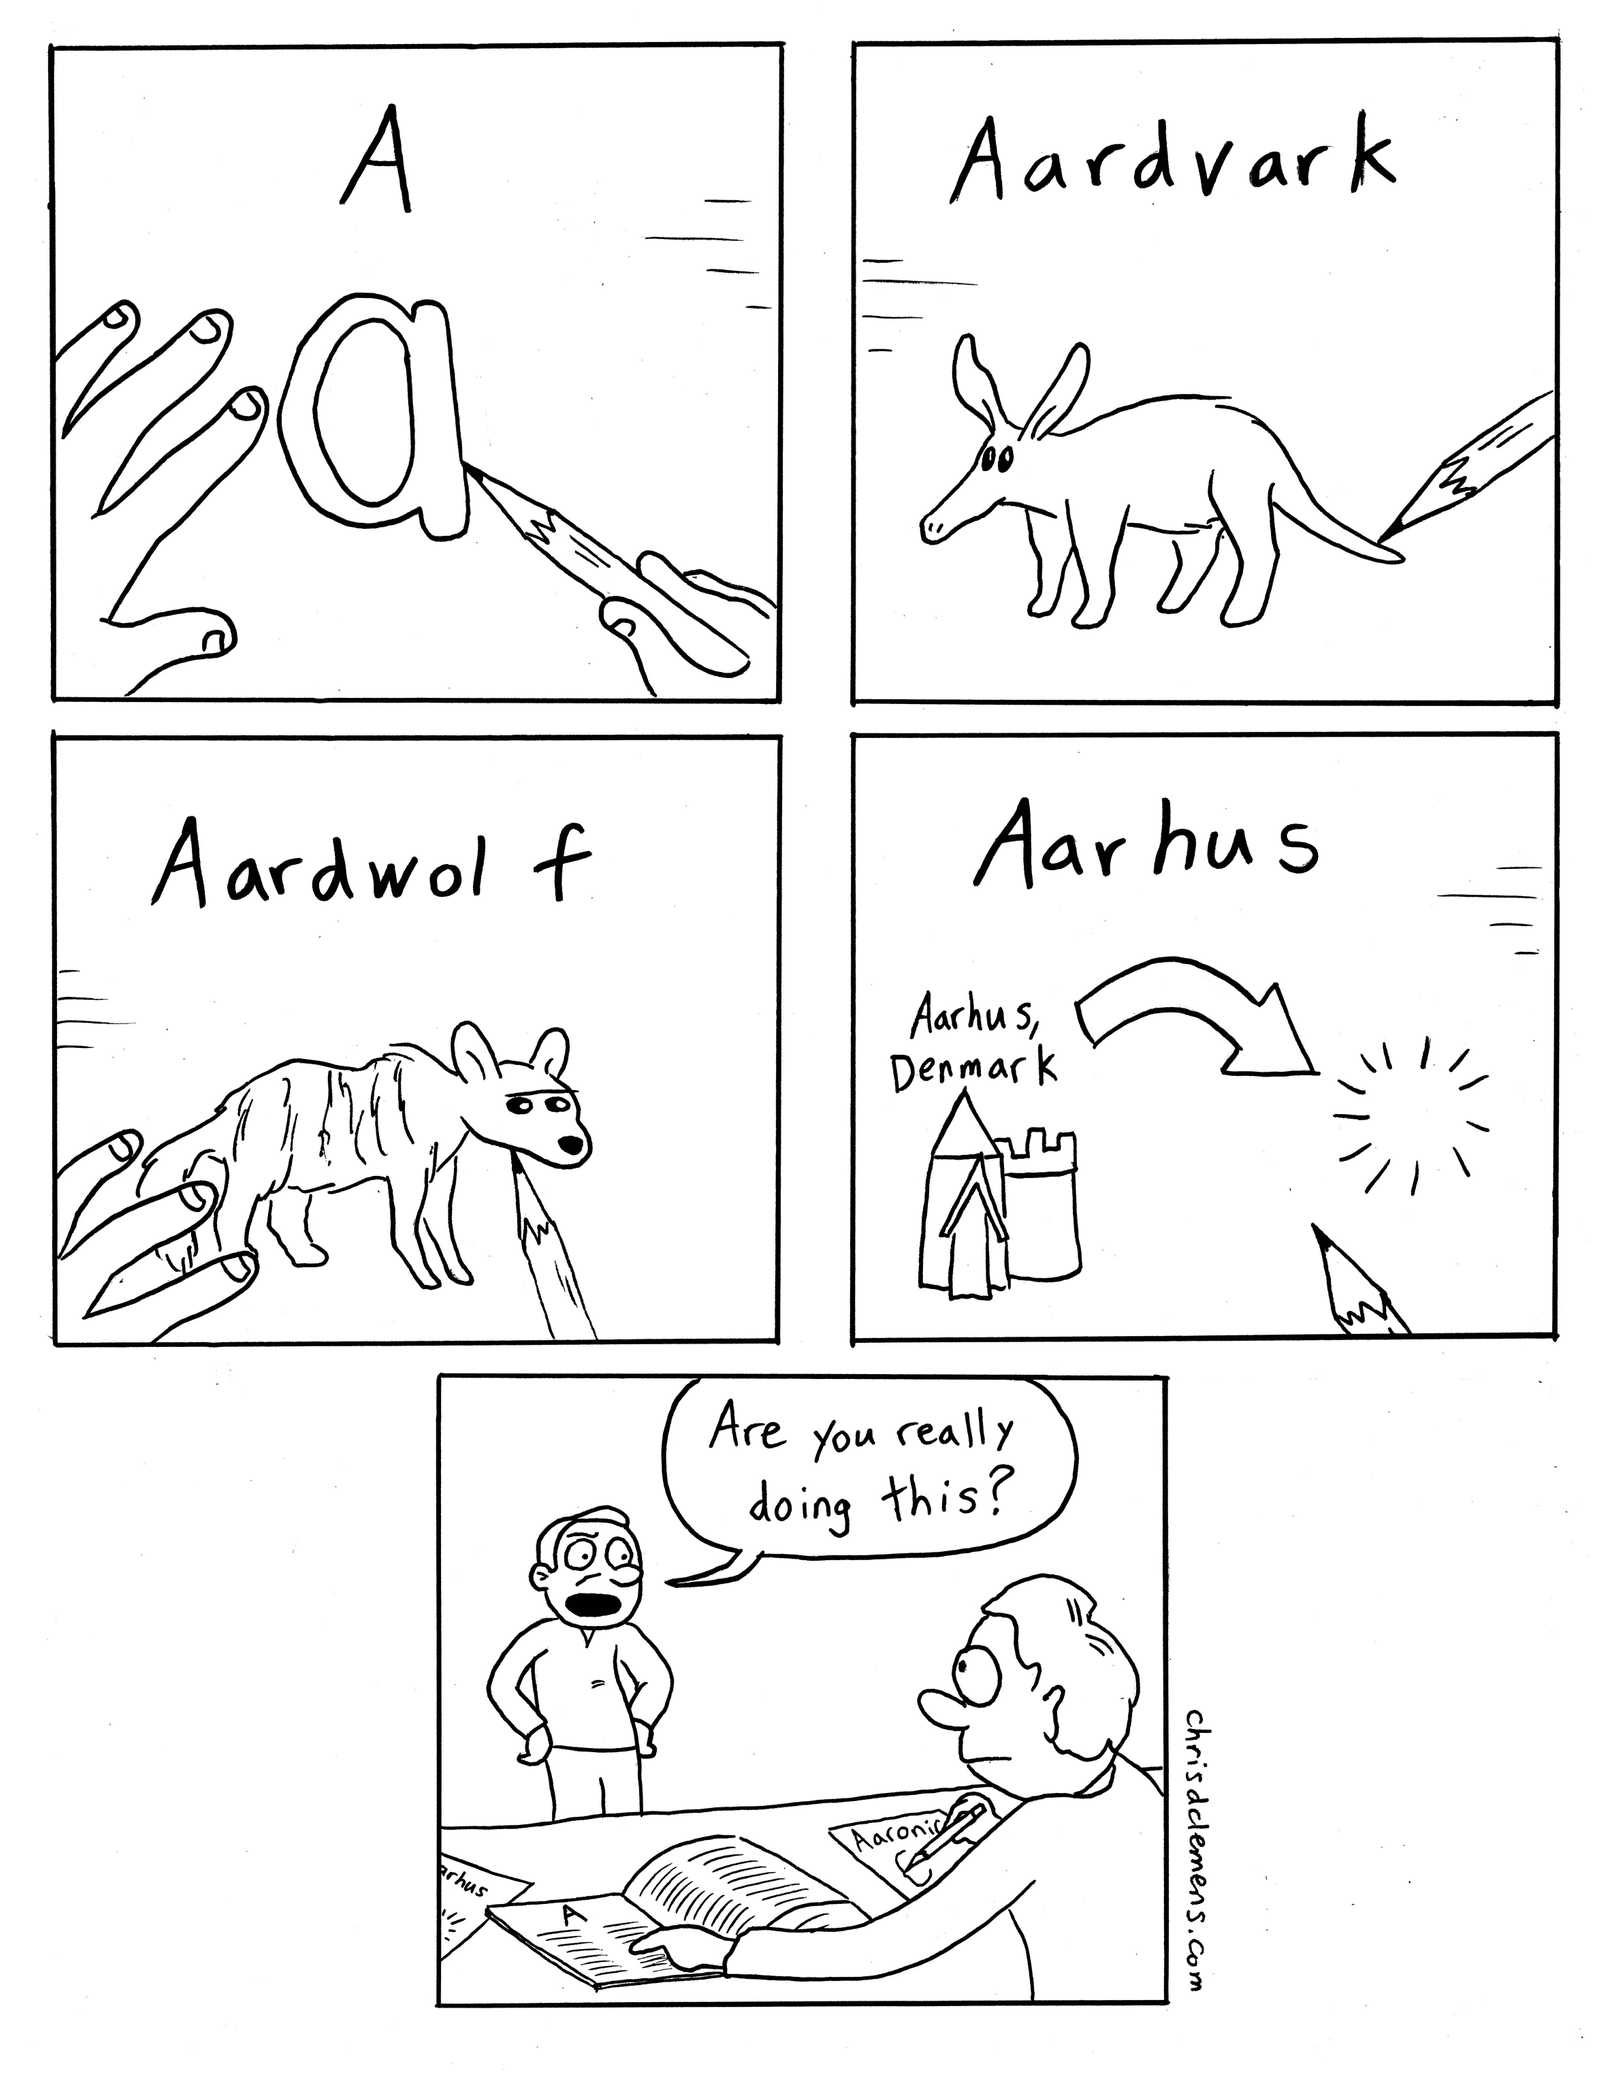 A
a
Aardvark
Aardwolf
Aarhus
Aarhus,
Denmark
Are you really
doing this?
Aaronic
arhus
A
chrisdclemens.com